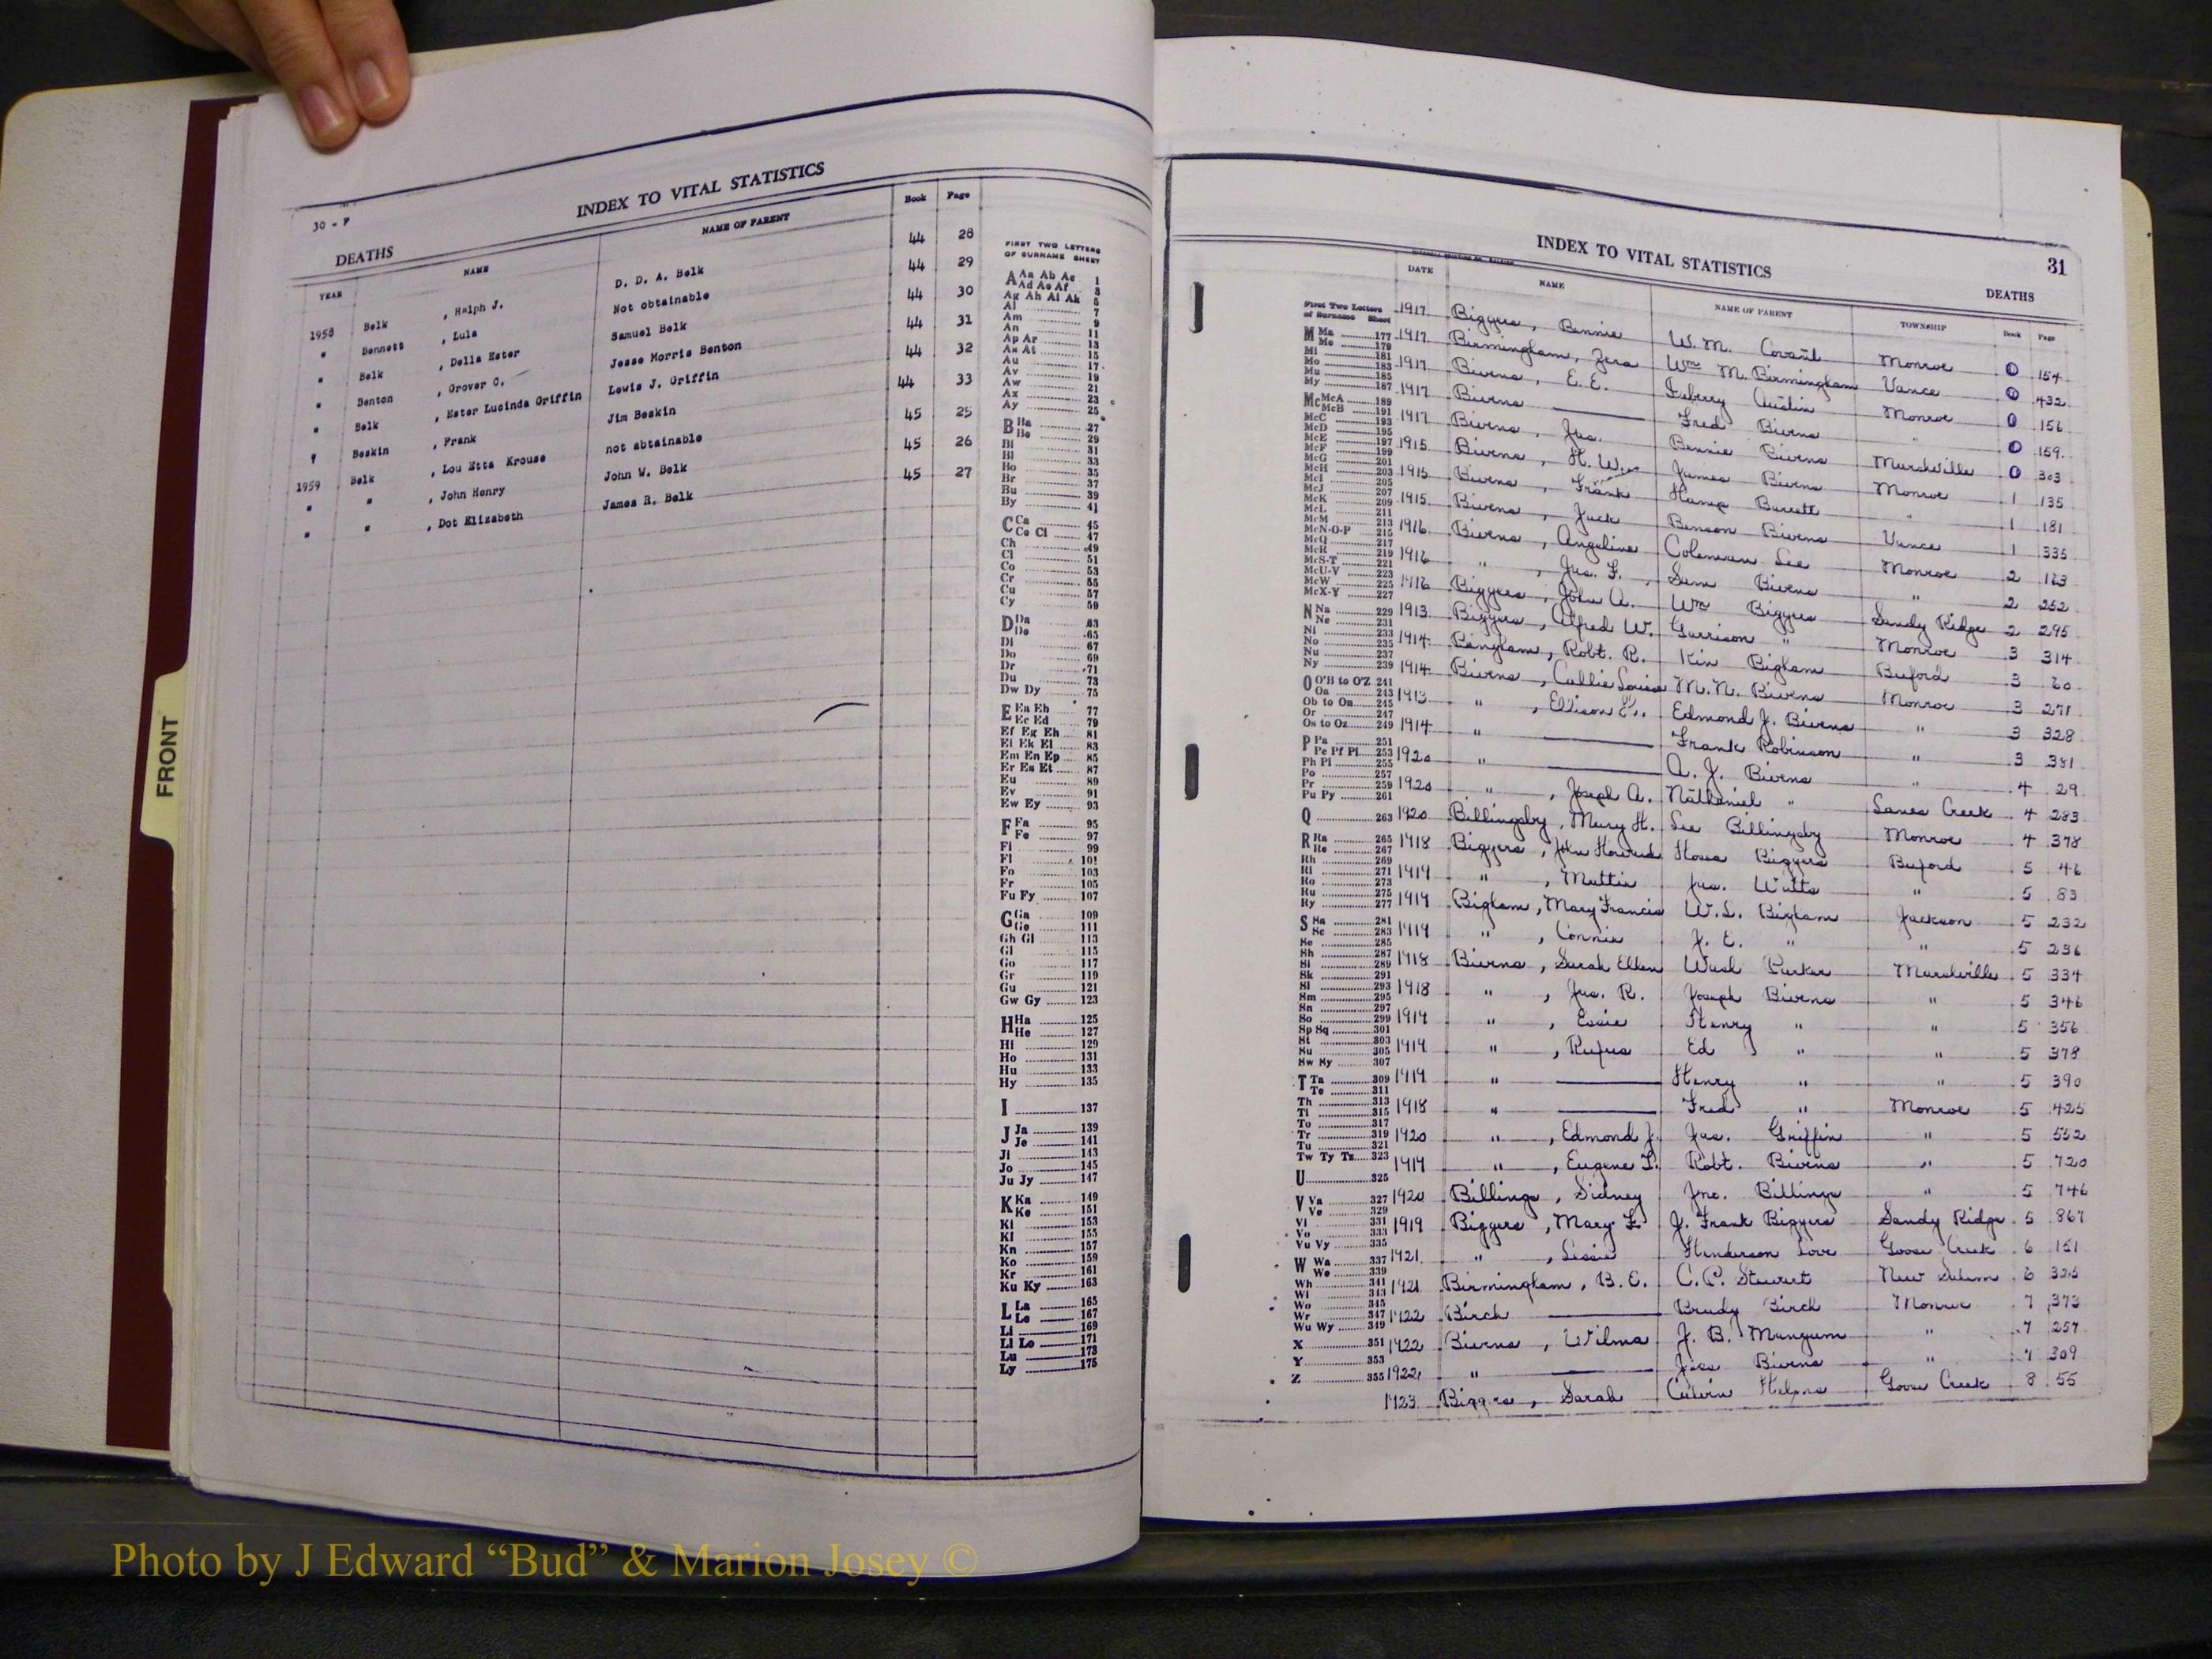 30 - F
INDEX TO VITAL STATISTICS
DEATHS
YEAR NAME NAME OF PARENT Book Page
1958 Belk , Ralph J. D. D. A. Belk 44 28
" Bennett , Lula Not obtainable 44 29
" Belk , Della Ester Samuel Belk 44 30
" Benton , Grover C. Jesse Morris Benton 44 31
" Belk , Ester Lucinda Griffin Lewis J. Griffin 44 32
" Beskin , Frank Jim Beskin 44 33
1959 Belk , Lou Etta Krouse not abtainable 45 25
" " , John Henry John W. Belk 45 26
" " , Dot Elizabeth James R. Belk 45 27
FIRST TWO LETTERS
OF SURNAME SHEET
A Aa Ab Ac 1
Ad Ae Af 3
Ag Ah Ai Ak 5
Al 7
Am 9
An 11
Ap Ar 13
As At 15
Au 17
Av 19
Aw 21
Ax 23
Ay 25
B Ba 27
Be 29
Bi 31
Bl 33
Bo 35
Br 37
Bu 39
By 41
C Ca 45
Ce Ci 47
Ch 49
Cl 51
Co 53
Cr 55
Cu 57
Cy 59
D Da 63
De 65
Di 67
Do 69
Dr 71
Du 73
Dw Dy 75
E Ea Eb 77
Ec Ed 79
Ef Eg Eh 81
Ei Ek El 83
Em En Ep 85
Er Es Et 87
Eu 89
Ev 91
Ew Ey 93
F Fa 95
Fe 97
Fi 99
Fl 101
Fo 103
Fr 105
Fu Fy 107
G Ga 109
Ge 111
Gh Gi 113
Gl 115
Go 117
Gr 119
Gu 121
Gw Gy 123
H Ha 125
He 127
Hi 129
Ho 131
Hu 133
Hy 135
I 137
J Ja 139
Je 141
Ji 143
Jo 145
Ju Jy 147
K Ka 149
Ke 151
Ki 153
Kl 155
Kn 157
Ko 159
Kr 161
Ku Ky 163
L La 165
Le 167
Li 169
Ll Lo 171
Lu 173
Ly 175
FRONT
INDEX TO VITAL STATISTICS 31
DEATHS
DATE NAME NAME OF PARENT TOWNSHIP Book Page
First Two Letters
of Surname Sheet
M Ma 177
Me 179
Mi 181
Mo 183
Mu 185
My 187
Mc McA 189
McB 191
McC 193
McD 195
McE 197
McF 199
McG 201
McH 203
McI 205
McJ 207
McK 209
McL 211
McM 213
McN-O-P 215
McQ 217
McR 219
McS-T 221
McU-V 223
McW 225
McX-Y 227
N Na 229
Ne 231
Ni 233
No 235
Nu 237
Ny 239
O O'B to O'Z 241
Oa 243
Ob to On 245
Or 247
Os to Oz 249
P Pa 251
Pe Pf Pi 253
Ph Pl 255
Po 257
Pr 259
Pu Py 261
Q 263
R Ra 265
Re 267
Rh 269
Ri 271
Ro 273
Ru 275
Ry 277
S Sa 281
Sc 283
Se 285
Sh 287
Si 289
Sk 291
Sl 293
Sm 295
Sn 297
So 299
Sp Sq 301
St 303
Su 305
Sw Sy 307
T Ta 309
Te 311
Th 313
Ti 315
To 317
Tr 319
Tu 321
Tw Ty Tz 323
U 325
V Va 327
Ve 329
Vi 331
Vo 333
Vu Vy 335
W Wa 337
We 339
Wh 341
Wi 343
Wo 345
Wr 347
Wu Wy 349
X 351
Y 353
Z 355
1917 Biggers, Bennie W. M. Monroe 0 154
1917 Birmingham, Zera Wm M. Birmingham Vance 0 432
1917 Bivens, E. E. Austin Monroe 0 156
1917 Bivens Fred Bivens " 0 159
1917 Bivens, Jas. Bennie Bivens Marshville 0 303
1915 Bivens, H. W. James Bivens Monroe 1 135
1915 Bivens, Frank Hamp Barrett " 1 181
1915 Bivens, Jack Benson Bivens Vance 1 335
1916 Bivens, Angeline Coleman Lee Monroe 2 163
1916 " , Jas. F. Sam Bivens " 2 252
1916 Biggers, John A. Wm Biggers Sandy Ridge 2 295
1913 Biggers, Alfred W. Garrison " Monroe 3 314
1914 Bangham, Robt. R. Kin Bigham Buford 3 60
1914 Bivens, Callie Louise M. N. Bivens Monroe 3 271
1913 " , Ellison E. Edmond J. Bivens " 3 328
1914 " Frank Robinson " 3 381
1920 " A. J. Bivens " 4 29
1920 " , Joseph A. Nathaniel " Lanes Creek 4 283
1920 Billingsby, Mary H. Lee Billingsby Monroe 4 378
1918 Biggers, John Howard Hosea Biggers Buford 5 46
1919 " , Mattie Jas. Watts " 5 83
1919 Bigham, Mary Francis W. L. Bigham Jackson 5 232
1919 " , Connie J. E. " " 5 236
1918 Bivens, Sarah Ellen Wash Parker Marshville 5 334
1918 " , Jas. R. Joseph Bivens " 5 346
1919 " , Essie Henry " " 5 356
1919 " , Rufus Ed " " 5 378
1919 " Henry " " 5 390
1918 " Fred " Monroe 5 425
1920 " , Edmond J. Jas. Griffin " 5 552
1919 " , Eugene L. Robt. Bivens " 5 720
1920 Billings, Sidney Jno. Billings " 5 746
1919 Biggers, Mary F. J. Frank Biggers Sandy Ridge 5 867
1921 " , Lessie Henderson Love Goose Creek 6 151
1921 Birmingham, B. E. C. P. Stewart New Salem 6 325
1922 Birch Brady Birch Monroe 7 373
1922 Bivens, Wilma J. B. Mangum " 7 257
1922 " Jess Bivens " 7 309
1923 Biggers, Sarah Calvin Helms Goose Creek 8 55
Photo by J Edward “Bud” & Marion Josey ©